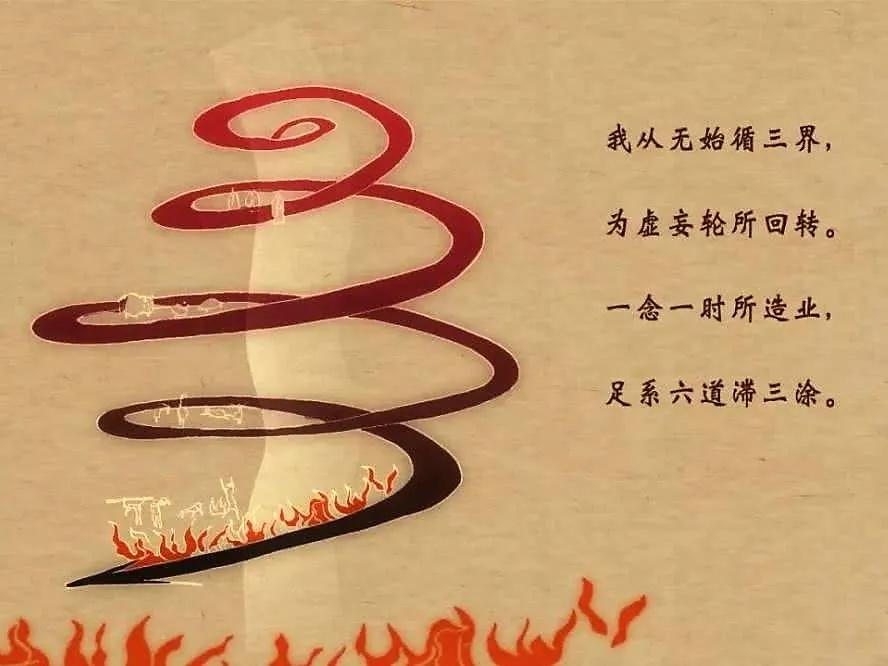 我从无始循三界，
为虚妄轮所回转。
一念一时所造业，
足系六道滞三涂。